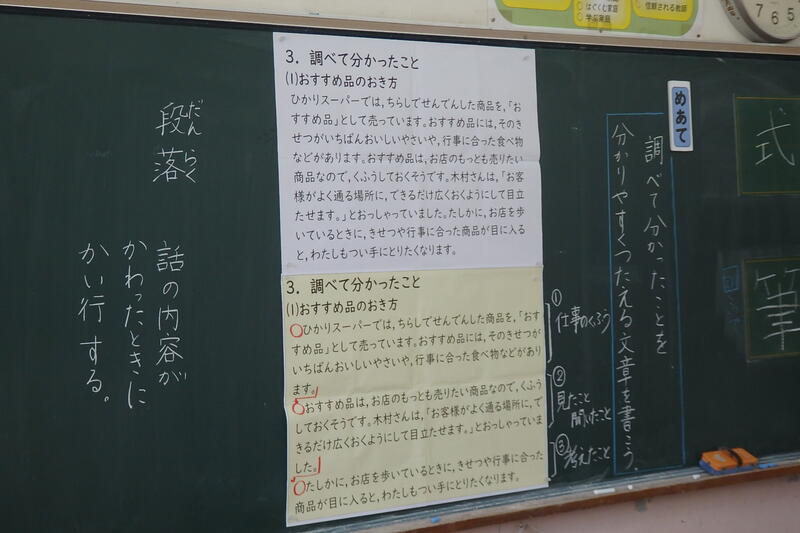 はぐくむ家庭
学ぶ家庭
信頼される教師
7 6 5
めあて
調べて分かったことを
分かりやすくつたえる文章を書こう。
式
筆
3．調べて分かったこと
(1)おすすめ品のおき方
ひかりスーパーでは，ちらしでせんでんした商品を，「お
すすめ品」として売っています。おすすめ品には，そのき
せつがいちばんおいしいやさいや，行事に合った食べ物
などがあります。おすすめ品は，お店のもっとも売りたい
商品なので，くふうしておくそうです。木村さんは，「お客
様がよく通る場所に，できるだけ広くおくようにして目立
たせます。」とおっしゃっていました。たしかに，お店を歩
いているときに，きせつや行事に合った商品が目に入る
と，わたしもつい手にとりたくなります。
3．調べて分かったこと
(1)おすすめ品のおき方
ひかりスーパーでは，ちらしでせんでんした商品を，「おす
すめ品」として売っています。おすすめ品には，そのきせつが
いちばんおいしいやさいや，行事に合った食べ物などがあり
ます。
おすすめ品は，お店のもっとも売りたい商品なので，くふう
しておくそうです。木村さんは，「お客様がよく通る場所に，で
きるだけ広くおくようにして目立たせます。」とおっしゃっていま
した。
たしかに，お店を歩いているときに，きせつや行事に合った
商品が目に入ると，わたしもつい手にとりたくなります。
①
仕事のくふう
②
見たこと
聞いたこと
③
考えたこと
段落
だんらく
話の内容が
かわったときに
かい行する。